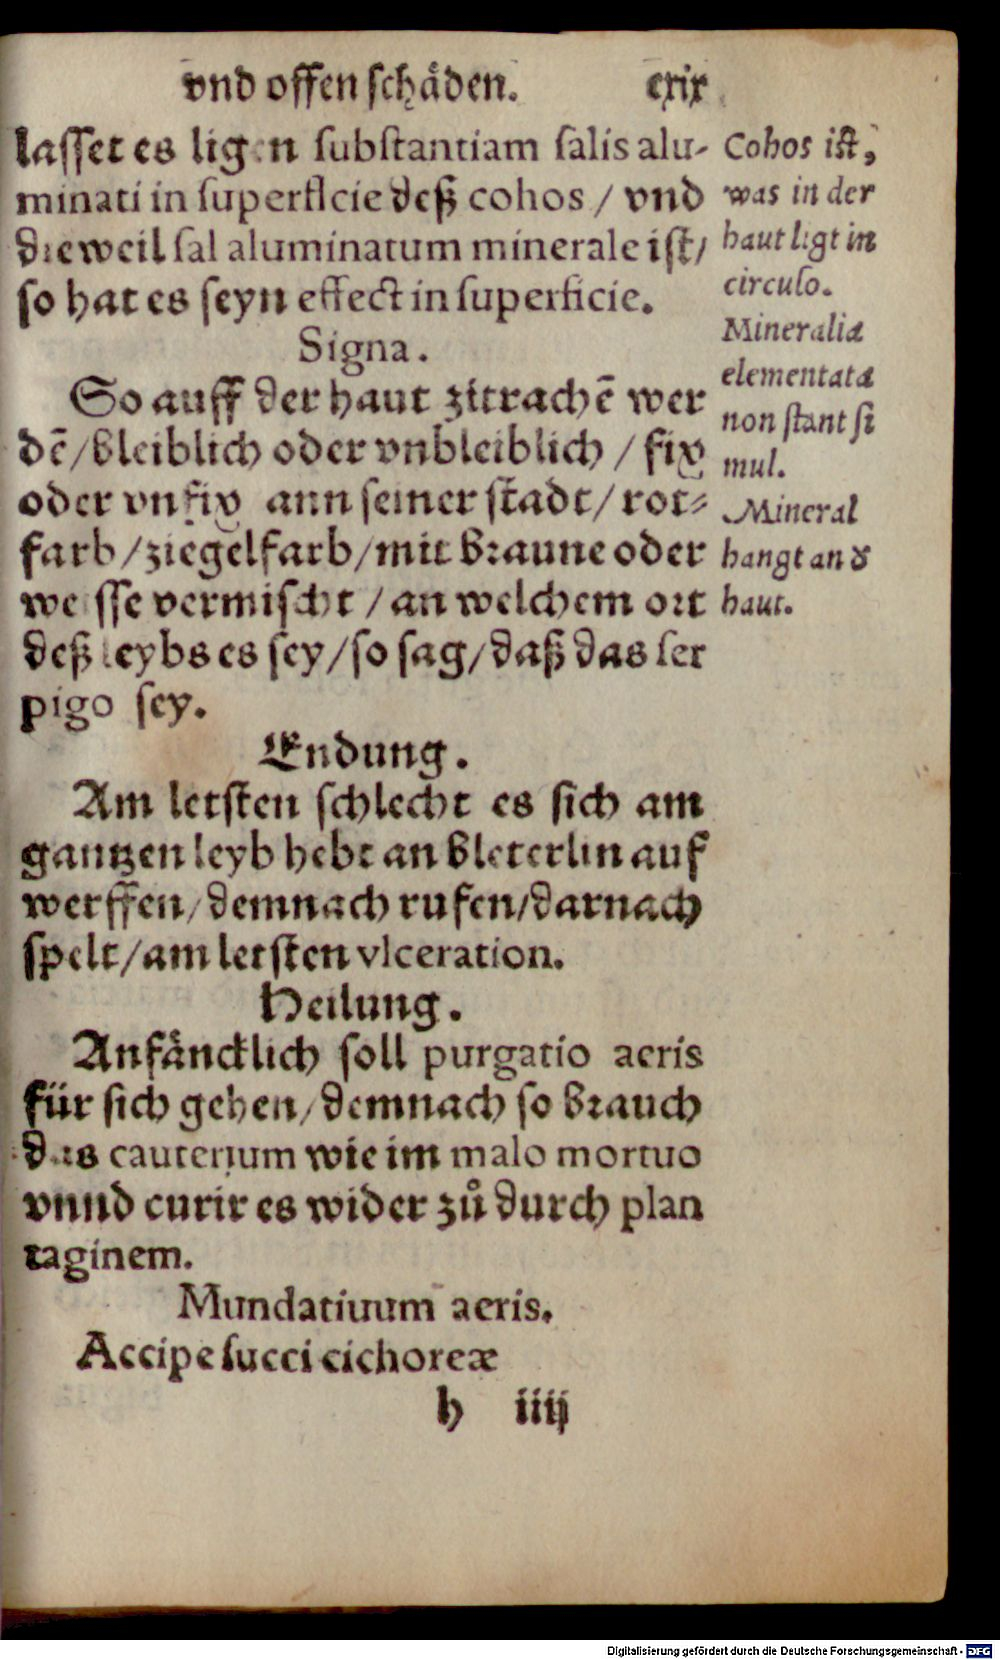 vnd offen schäden. cxix
lasset es ligen substantiam salis alu-
minati in superficie deß cohos / vnd
dieweil sal aluminatum minerale ist/
so hat es seyn effect in superficie.
Signa.
So auff der haut zitrachē wer
dē/bleiblich oder vnbleiblich / fix
oder vnfix ann seiner stadt/ rot⸗
farb/ziegelfarb/mit braune oder
weisse vermischt / an welchem ort
deß leybs es sey/so sag/daß das ser
pigo sey.
Endung.
Am letsten schlecht es sich am
gantzen leyb hebt an bleterlin auf
werffen/demnach rufen/darnach
spelt/am letsten vlceration.
Heilung.
Anfäncklich soll purgatio aeris
für sich gehen/demnach so brauch
das cauterium wie im malo mortuo
vnnd curir es wider zů durch plan
taginem.
Mundatiuum aeris.
Accipe succi cichoreæ
h iiij
Cohos ist,
was in der
haut ligt in
circulo.
Mineralia
elementata
non stant si
mul.
Mineral
hangt an ď
haut.
Digitalisierung gefördert durch die Deutsche Forschungsgemeinschaft - DFG